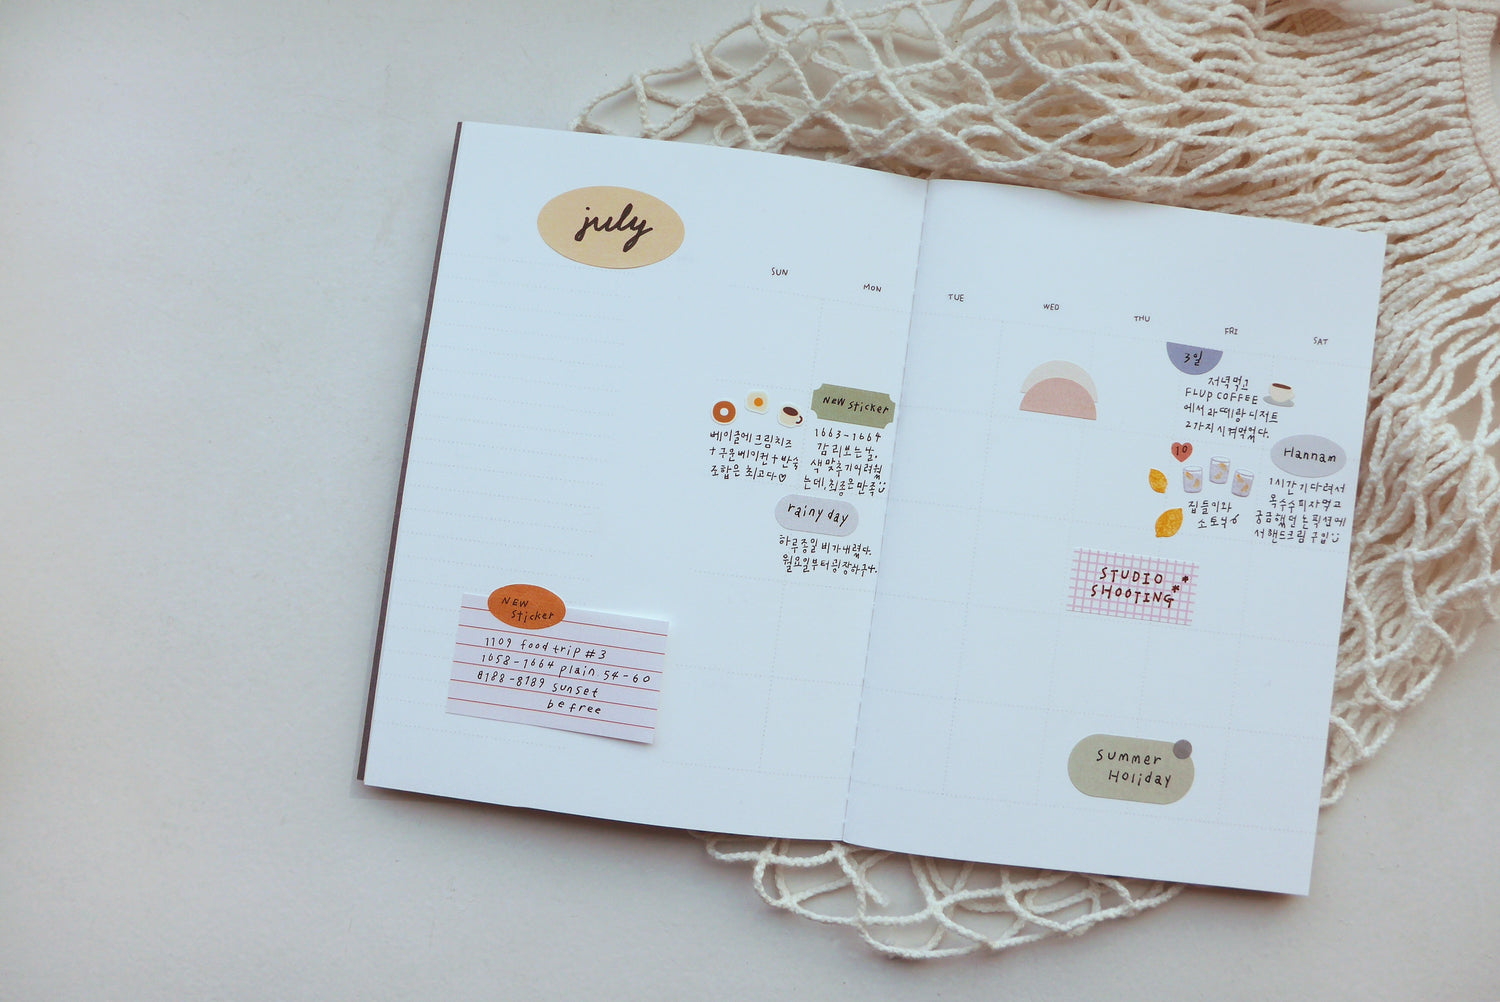 july
SUN
MON
TUE
WED
THU
FRI
SAT
3일
저녁먹고
FLUP COFFEE
에서 라떼랑 디저트
2가지 시켜먹었다.
베이글에 크림치즈
+구운베이컨+반숙
조합은 최고다♡
NEW Sticker
1663-1664
감리보는날.
색 맞추기 어려웠
는데, 최종은 만족
10
집들이와
소토닉
Hannam
1시간 기다려서
옥수수피자먹고
궁금했던 논픽션에
서 핸드크림 구입
rainy day
하루종일 비가내렸다.
월요일부터 굉장하구나.
STUDIO
SHOOTING
NEW
Sticker
1109 food trip #3
1658-1664 plain 54-60
8188-8189 sunset
be free
Summer
Holiday